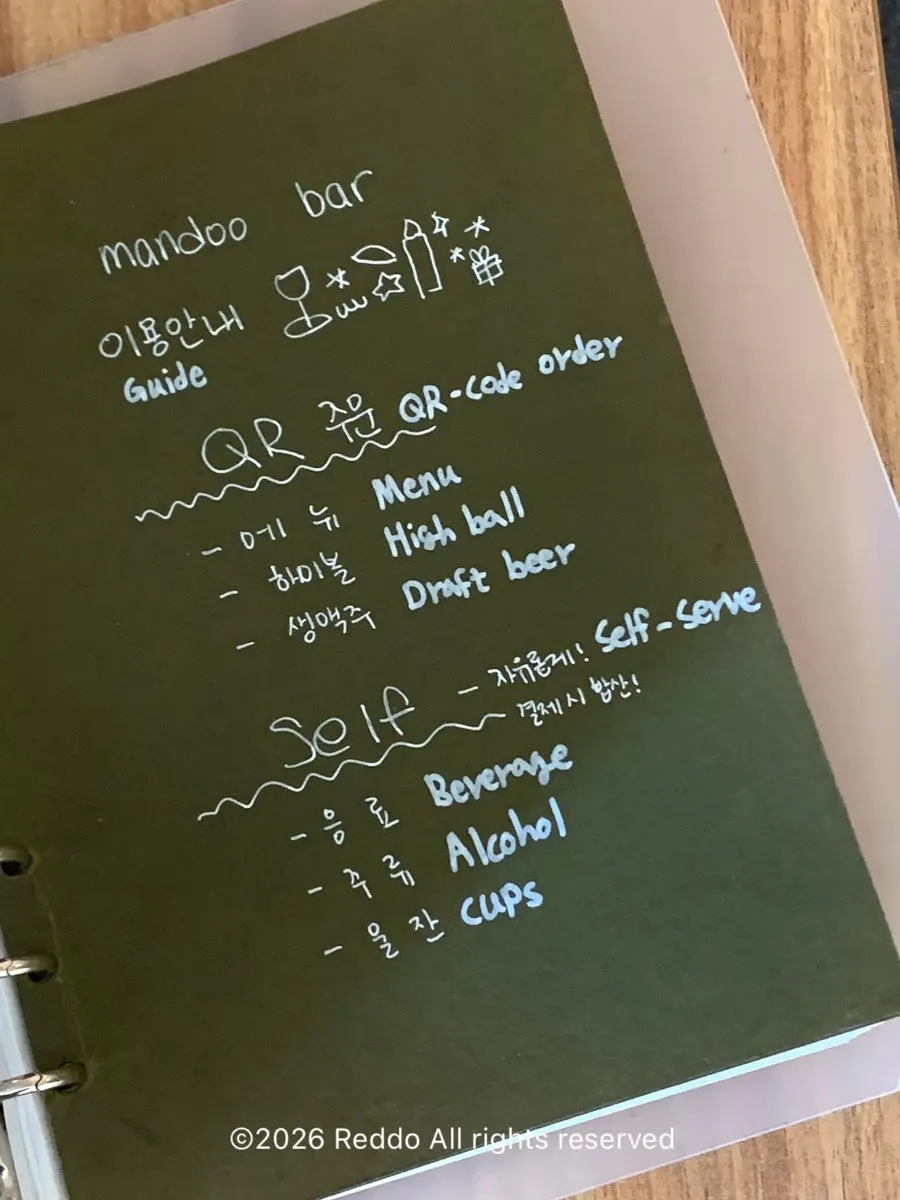 mandoo bar
이용안내
Guide
QR 주문 QR-code order
- 메뉴 Menu
- 하이볼 High ball
- 생맥주 Draft beer
Self - 자유롭게! Self-serve
결제시 합산!
- 음료 Beverage
- 주류 Alcohol
- 물잔 cups
©2026 Reddo All rights reserved